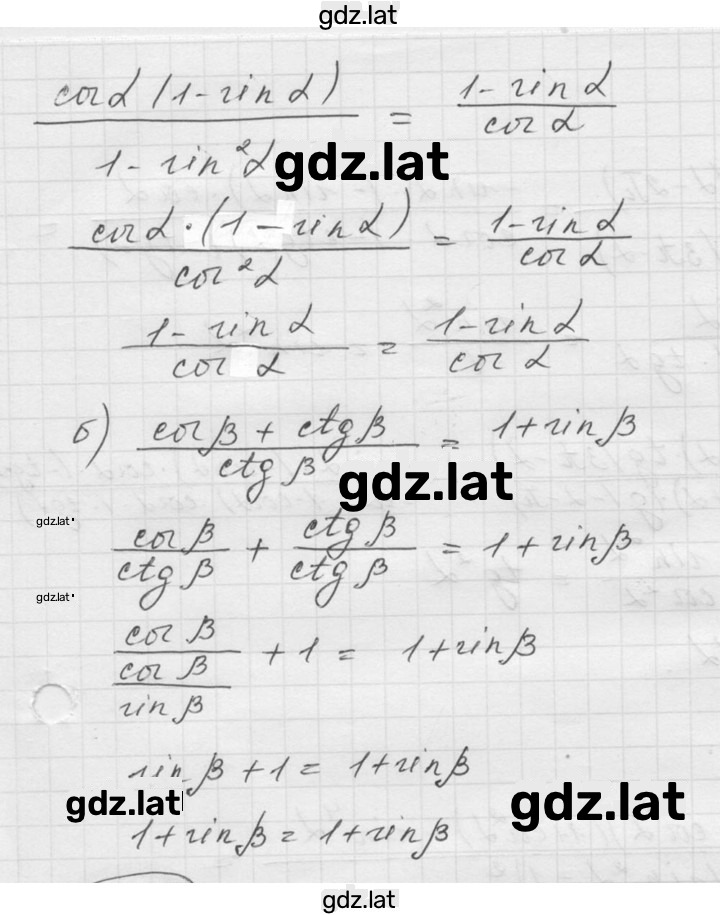 gdz.lat
cosα(1-sinα)/(1-sin²α) = (1-sinα)/cosα
gdz.lat
cosα·(1-sinα)/cos²α = (1-sinα)/cosα
(1-sinα)/cosα = (1-sinα)/cosα
б) (cosβ + ctgβ)/ctgβ = 1+sinβ
gdz.lat
gdz.lat
cosβ/ctgβ + ctgβ/ctgβ = 1+sinβ
gdz.lat
cosβ/(cosβ/sinβ) + 1 = 1+sinβ
sinβ+1 = 1+sinβ
gdz.lat
gdz.lat
1+sinβ = 1+sinβ
gdz.lat